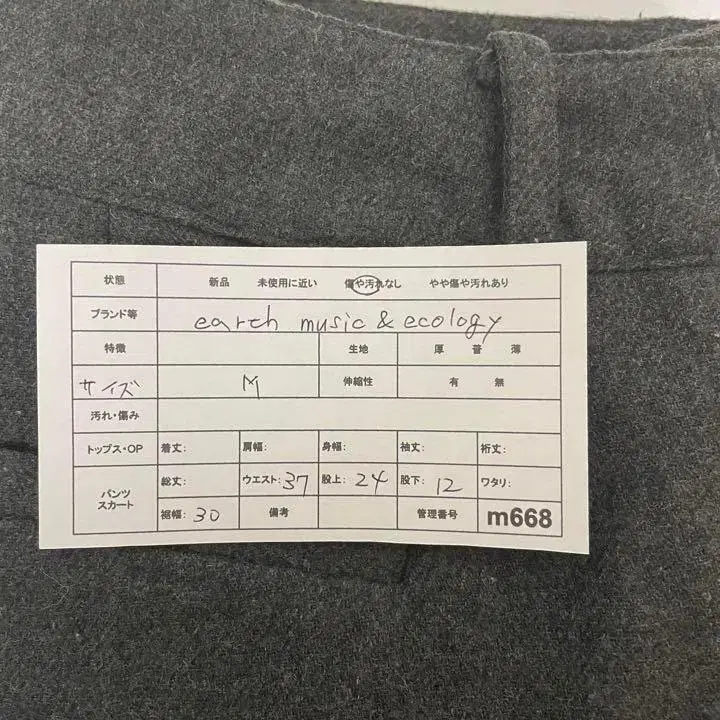 状態 新品 未使用に近い 傷や汚れなし やや傷や汚れあり
ブランド等 earth music & ecology
特徴 生地 厚 普 薄
サイズ M 伸縮性 有 無
汚れ・傷み
トップス・OP 着丈: 肩幅: 身幅: 袖丈: 裄丈:
パンツ
スカート
総丈: ウエスト: 37 股上: 24 股下: 12 ワタリ:
裾幅: 30 備考 管理番号 m668